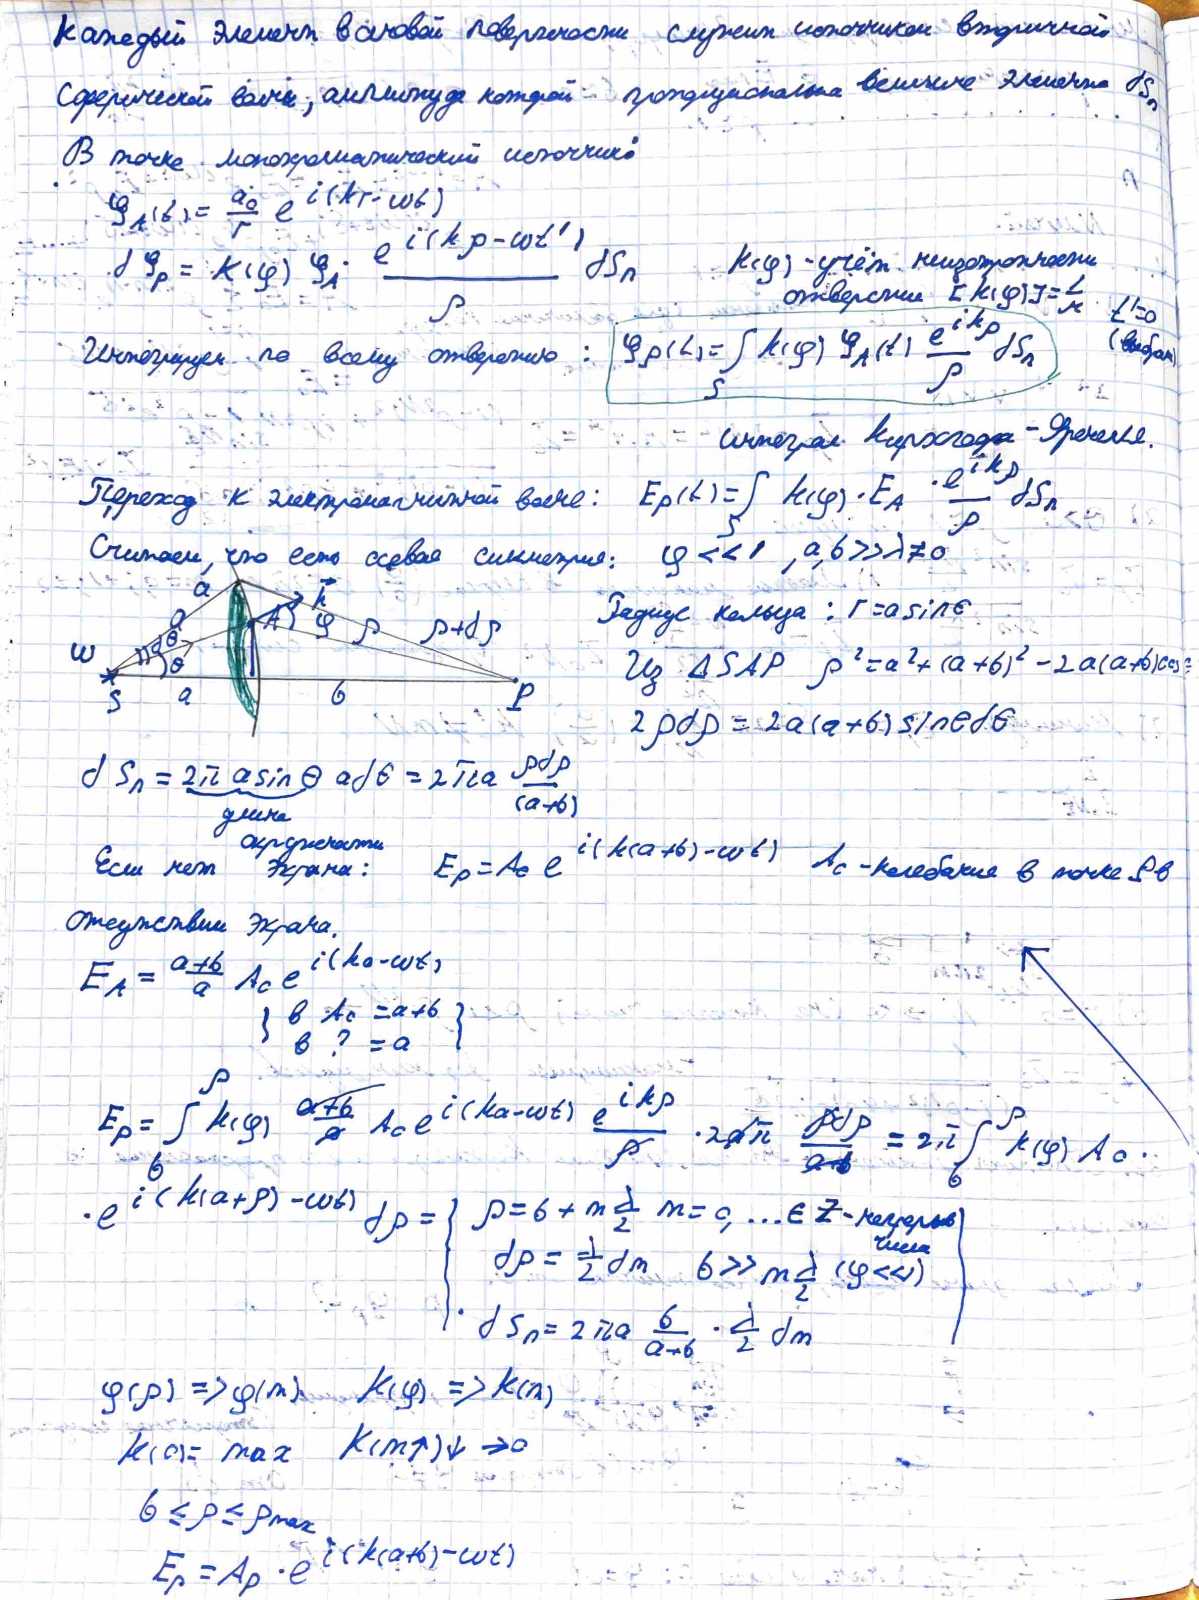 Каждый элемент волновой поверхности служит источником вторичной
сферической волны, амплитуда которой пропорциональна величине элемента dSₙ
В точке монохроматический источник:
φ_A(t) = a₀/r e^{i(kr-ωt)}
dφ_p = K(φ) φ_A · e^{i(kρ-ωt')}/ρ dSₙ
K(φ) - учёт неизотропности
отверстия [K(φ)] = 1/м t'=0
(выбран)
Интегрируем по всему отверстию: φ_p(t) = ∫_S K(φ) φ_A(t) e^{ikρ}/ρ dSₙ
интеграл Кирхгофа - Френеля.
Переход к электромагнитной волне: E_p(t) = ∫_S K(φ) · E_A · e^{ikρ}/ρ dSₙ
Считаем, что есть осевая симметрия: φ << 1, a, b >> λ ≠ 0
a a dθ θ A k φ ρ ρ+dρ
ω S a b P
Радиус кольца: r = a sinθ
Из ΔSAP ρ² = a² + (a+b)² - 2a(a+b)cosθ
2ρdρ = 2a(a+b) sinθdθ
dSₙ = 2π a sinθ a dθ = 2πa ρdρ/(a+b)
длина
окружности
Если нет экрана: E_p = A₀ e^{i(k(a+b)-ωt)} A₀ - колебание в точке P в
отсутствии экрана.
E_A = (a+b)/a A₀ e^{i(ka-ωt)}
{ в A₀ = a+b }
{ в ? = a }
E_p = ∫_b^ρ K(φ) (a+b)/a A₀ e^{i(ka-ωt)} e^{ikρ}/ρ · 2aπ ρdρ/(a+b) = 2π ∫_b^ρ K(φ) A₀ ·
· e^{i(k(a+ρ)-ωt)} dρ = { ρ = b + m λ/2 m = 0, ... ∈ Z - непрерыв
числа
dρ = λ/2 dm b >> m λ/2 (φ<<1)
dSₙ = 2πa b/(a+b) · λ/2 dm
φ(ρ) => φ(m) K(φ) => K(m)
K(0) = max K(m↑)↓ → 0
b ≤ ρ ≤ ρmax
E_p = A_p · e^{i(k(a+b)-ωt)}